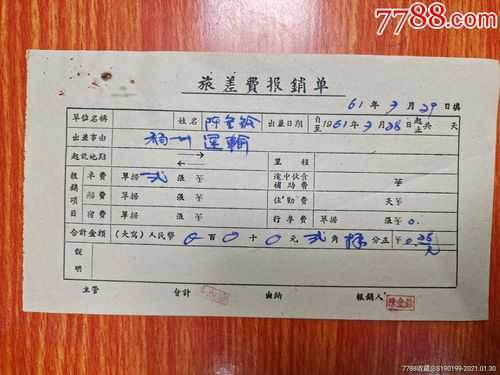 7788.com
旅差費报銷单
61 年 3 月 29 日填
單位名稱 姓名 陈金鈴 出差日期 自至1961年3月28日起止共 天
出差事由 福州 運輸
起訖地點 ← → 里程
報銷項目 車費 單據 弍 張 ￥ 途中伙食補助費 ￥
船費 單據 張 ￥ 住勤費 天￥
宿費 單據 張 ￥ 行李費 單據 張￥ 0.
合計金額 (大寫)人民幣 0 百 0 十 0 元 弍 角 分正 ￥
説明
主管 会計 出納 报銷人
7788收藏@S190199-2021.01.30